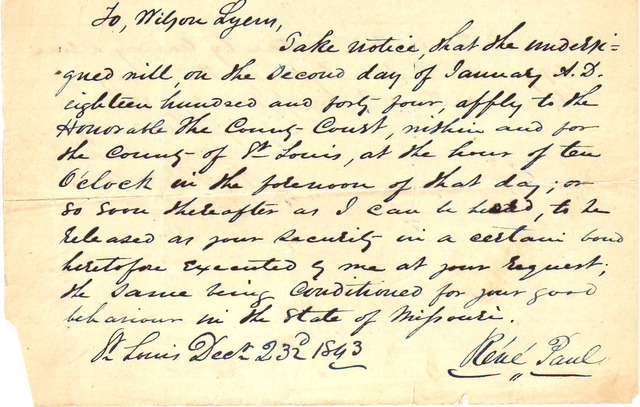 To, Wilson Lyers,
Take notice, that the undersi-
gned will, on the Second day of January A.D.
eighteen hundred and forty four, apply to the
Honorable the County Court, within and for
the County of St Louis, at the hour of ten
O'clock in the forenoon of that day; or
so soon thereafter as I can be heard, to be
released as your security in a certain bond
heretofore executed by me at your request;
the same being conditioned for your good
behaviour in the State of Missouri.
St Louis Decr 23d 1843
René Paul